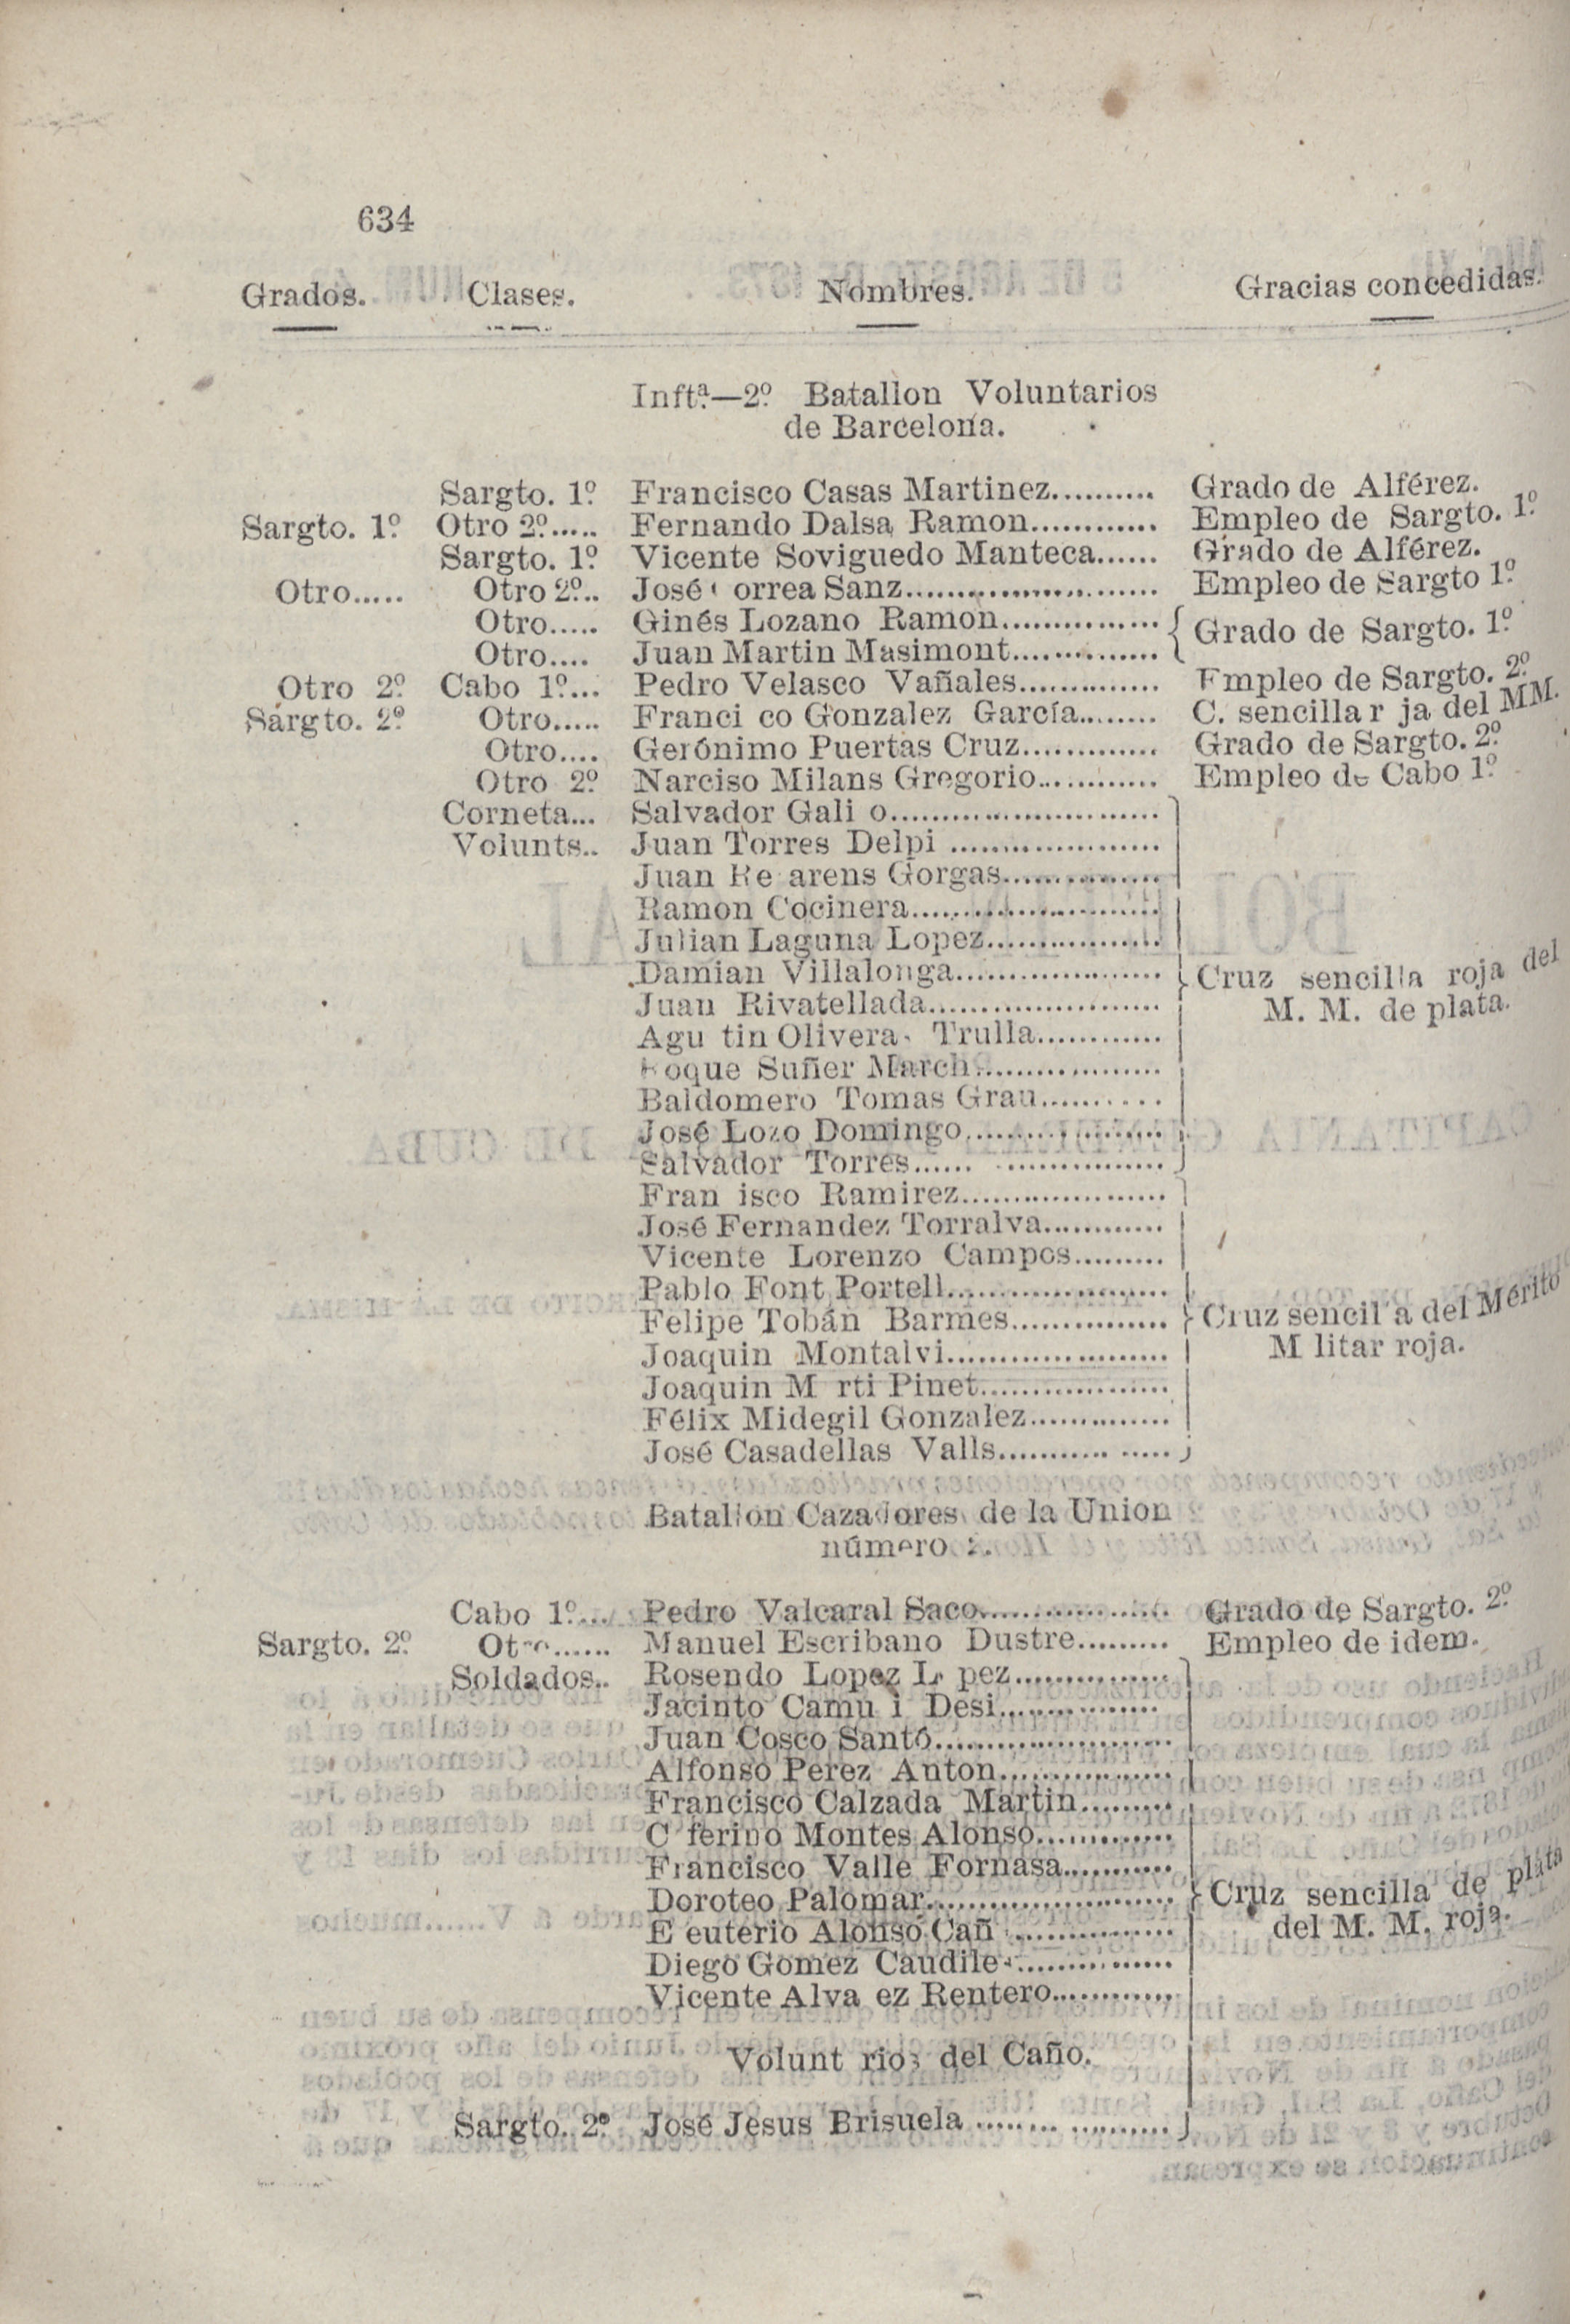 634
Grados. Clases. Nombres. Gracias concedidas.
Inftª.—2º. Batallon Voluntarios
de Barcelona.
Sargto. 1º. Francisco Casas Martinez.......... Grado de Alférez.
Sargto. 1º. Otro 2º..... Fernando Dalsa Ramon............ Empleo de Sargto. 1º.
Sargto. 1º. Vicente Soviguedo Manteca...... Grado de Alférez.
Otro..... Otro 2º.. José orrea Sanz........................ Empleo de Sargto 1º.
Otro..... Ginés Lozano Ramon............... { Grado de Sargto. 1º.
Otro.... Juan Martin Masimont..............
Otro 2º. Cabo 1º... Pedro Velasco Vañales.............. Empleo de Sargto. 2º.
Sargto. 2º. Otro..... Franci co Gonzalez García........ C. sencilla r ja del MM.
Otro.... Gerónimo Puertas Cruz............. Grado de Sargto. 2º.
Otro 2º. Narciso Milans Gregorio............ Empleo de Cabo 1º.
Corneta... Salvador Gali o..........................
Volunts.. Juan Torres Delpi ....................
Juan Re arens Gorgas...............
Ramon Cocinera........................
Julian Laguna Lopez.................
Damian Villalonga.................... } Cruz sencilla roja del
Juan Rivatellada...................... M. M. de plata.
Agu tin Olivera Trulla............
Roque Suñer March..................
Baldomero Tomas Grau..........
José Lozo Domingo...................
Salvador Torres...... ................
Fran isco Ramirez....................
José Fernandez Torralva............
Vicente Lorenzo Campos.........
Pablo Font Portell.....................
Felipe Tobán Barmes............... } Cruz sencil a del Mérito
Joaquin Montalvi..................... M litar roja.
Joaquin M rti Pinet..................
Félix Midegil Gonzalez.............
José Casadellas Valls........... .....
Batallon Cazadores de la Union
número .
Cabo 1º... Pedro Valcaral Saco.................. Grado de Sargto. 2º.
Sargto. 2º. Otro...... Manuel Escribano Dustre......... Empleo de idem.
Soldados.. Rosendo Lopez L pez...............
Jacinto Camu i Desi...............
Juan Cosco Santó......................
Alfonso Perez Anton................
Francisco Calzada Martin.........
C ferino Montes Alonso.............
Francisco Valle Fornasa...........
Doroteo Palomar........................ } Cruz sencilla de plata
E euterio Alonso Cañ ............... del M. M. roja.
Diego Gomez Caudile ...............
Vicente Alva ez Rentero............
Volunt rios del Caño.
Sargto. 2º. José Jesus Brisuela ........ ..........